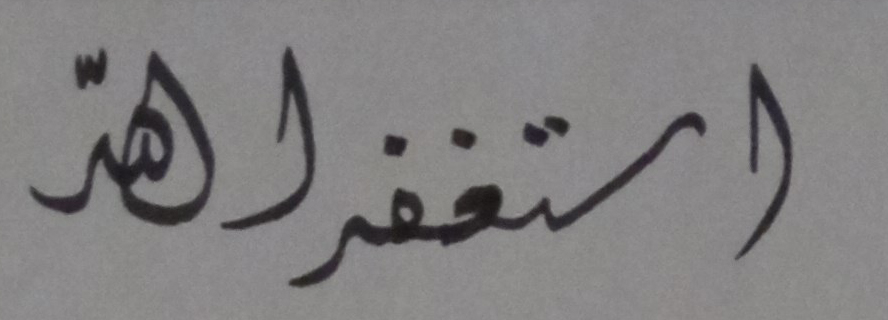 استغفر اللّه